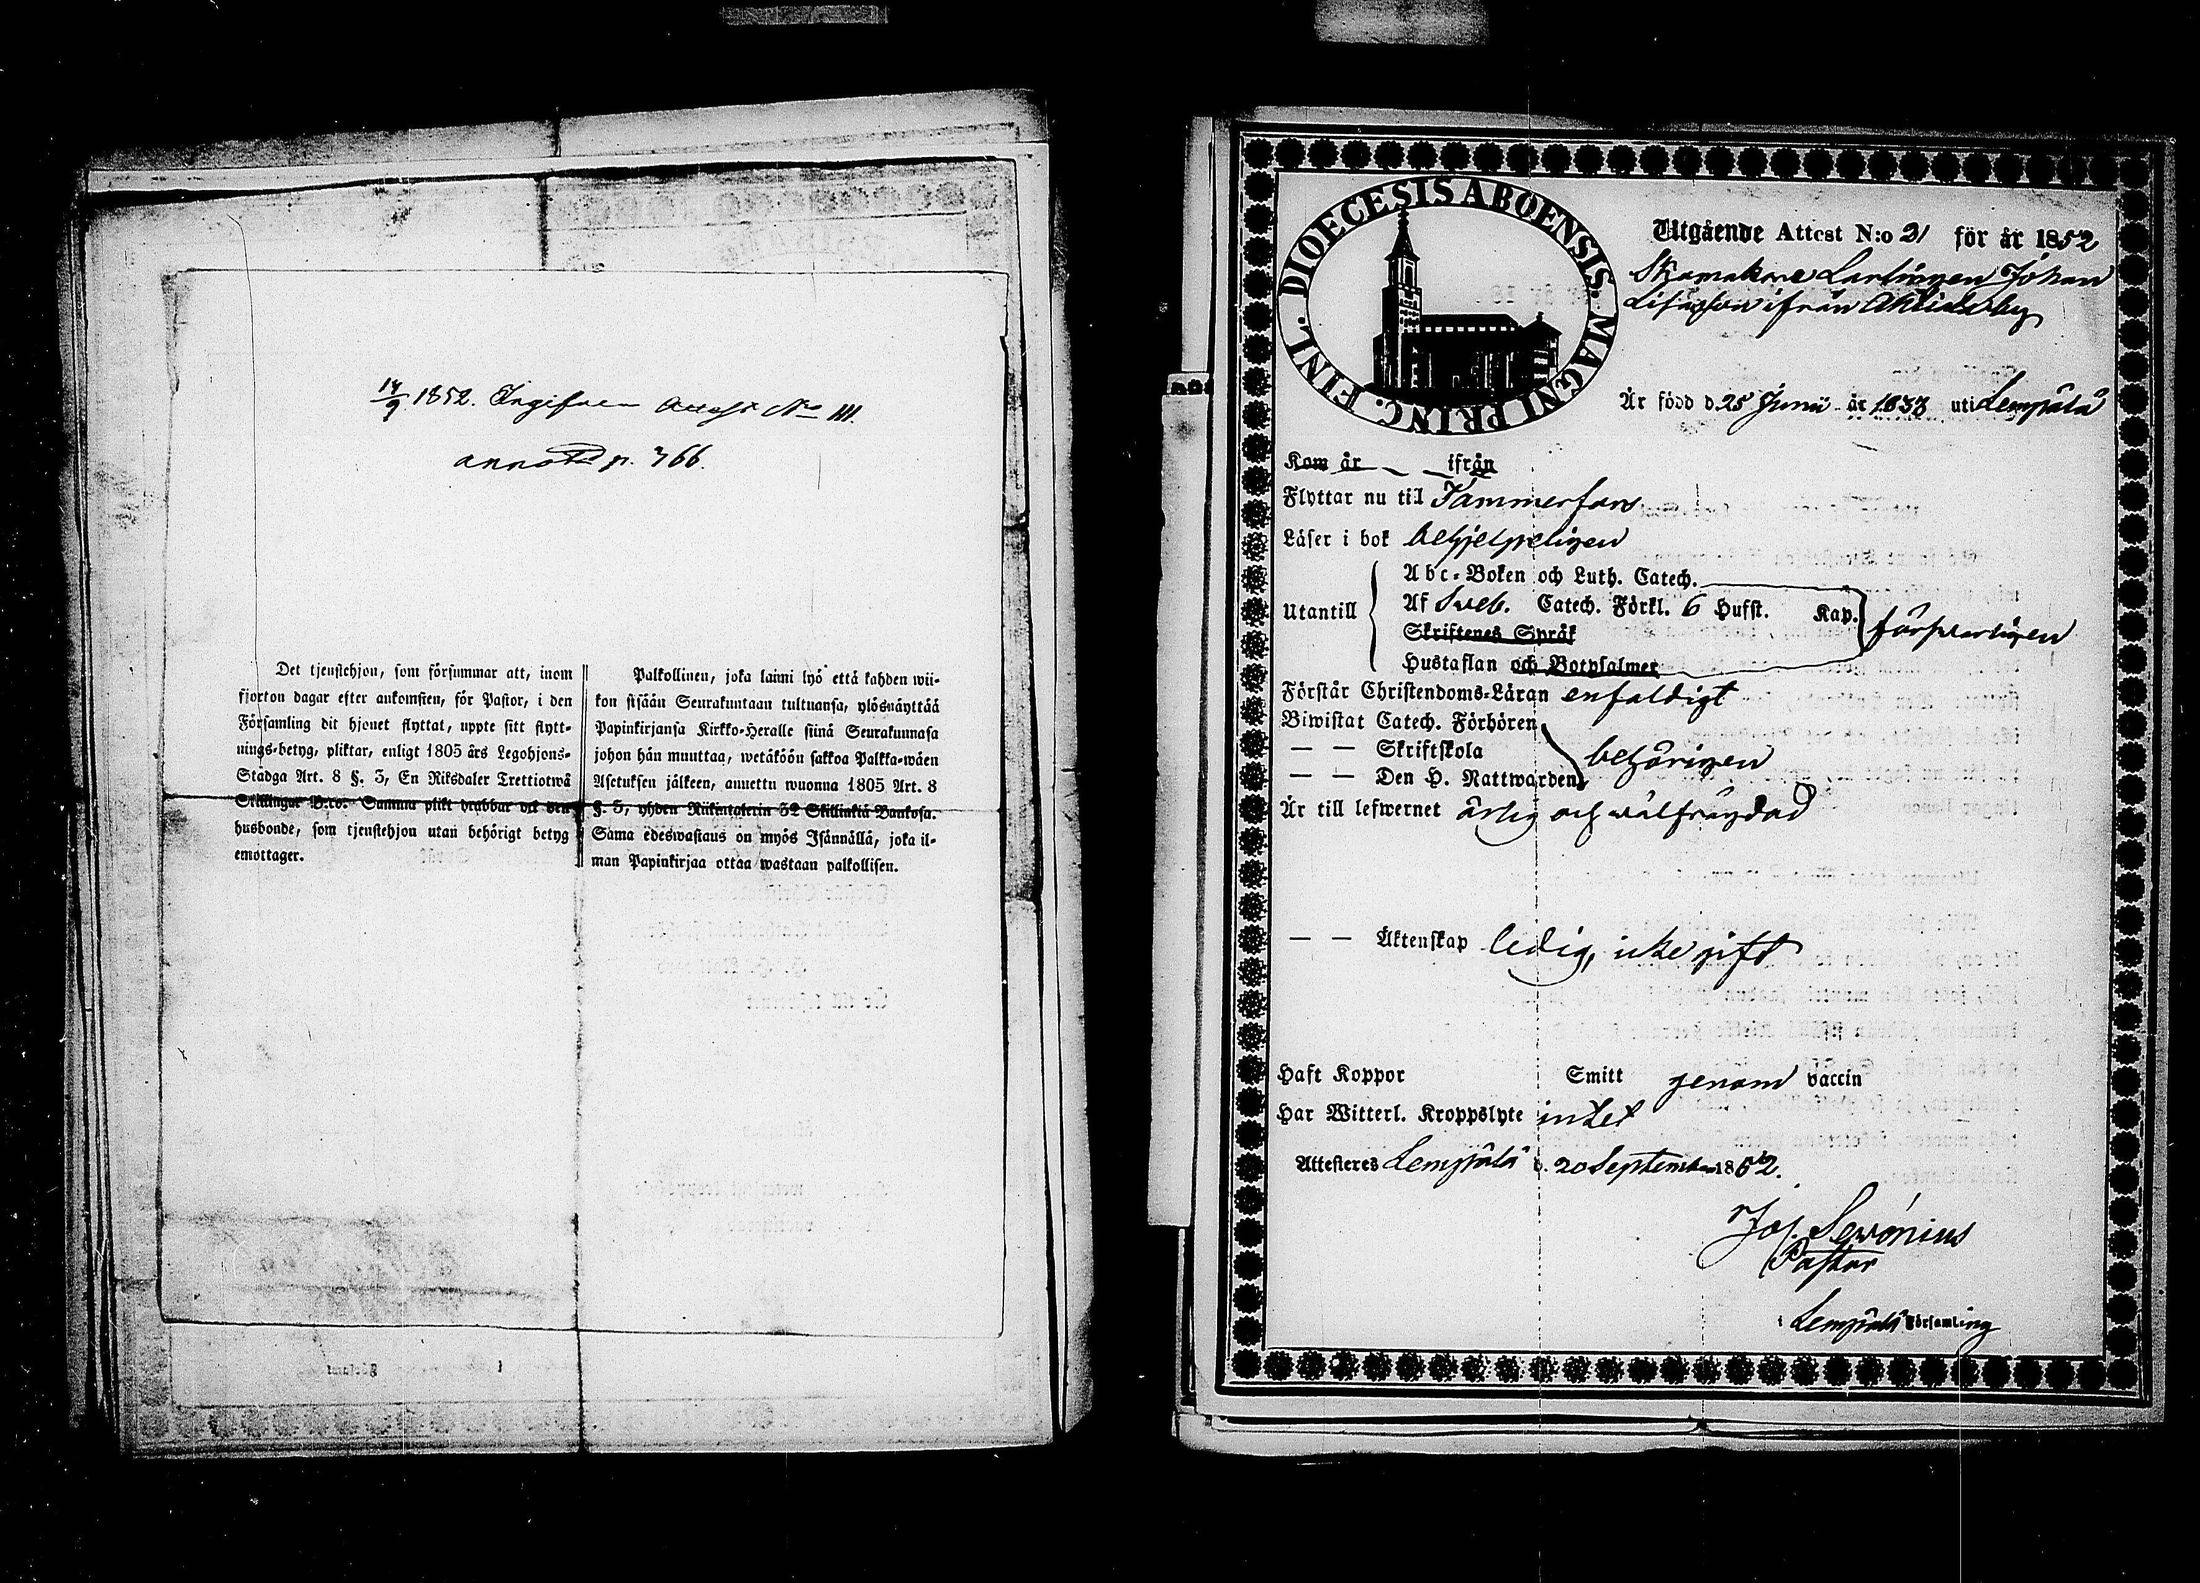 14/9 1852. Ingifven Attest No 111.
annoterd p. 366.
Det tjenstehjon, som försummar att, inom
fjorton dagar efter ankomsten, för Pastor, i den
Församling dit hjonet flyttat, uppte sitt flytt-
nings-betyg, pliktar, enligt 1805 års Legohjons-
Stadga Art. 8 §. 3, En Riksdaler Trettiotwå
Skillingar B:co. Samma plikt drabbar ock den
husbonde, som tjenstehjon utan behörigt betyg
emottager.
Palkollinen, joka laimi lyö että kahden wii-
kon sisään Seurakuntaan tultuansa, ylösnäyttää
Papinkirjansa Kirkko-Heralle siinä Seurakunnasa
johon hän muuttaa, wetäköön sakkoa Palkka-wäen
Asetuksen jälkeen, annettu wuonna 1805 Art. 8
§. 3, yhden Riikintalerin 32 Skillinkiä Bankosa.
Sama edeswastaus on myös Isännällä, joka il-
man Papinkirjaa ottaa wastaan palkollisen.
DIOECESIS ABOENSIS. MAGNI PRINC. FINL.
Utgående Attest N:o 21 för år 1852
Skomakare Lärlingen Johan
ifrån by
År född d. 25 Junii år 1833 uti Lempälä
Kom år ifrån
Flyttar nu til Tammerfors
Läser i bok behjelpeligen
Abc-Boken och Luth. Catech.
Utantill Af Sveb. Catech. Förkl. 6 Hufst. Kap. försvarligen
Skriftenes Språk
Hustaflan och Botpsalmer
Förstår Christendoms-Läran enfaldigt
Biwistat Catech. Förhören
— — Skriftskola behörigen
— — Den H. Nattwarden
Är till lefwernet ärlig och välfrägdad
— — Äktenskap ledig, icke gift
Haft Koppor Smitt genom vaccin
Har Witterl. Kroppslyte intet
Attesteres Lempälä d. 20 September 1852.
Jos. Sevónius
Pastor
i Lempälä Församling